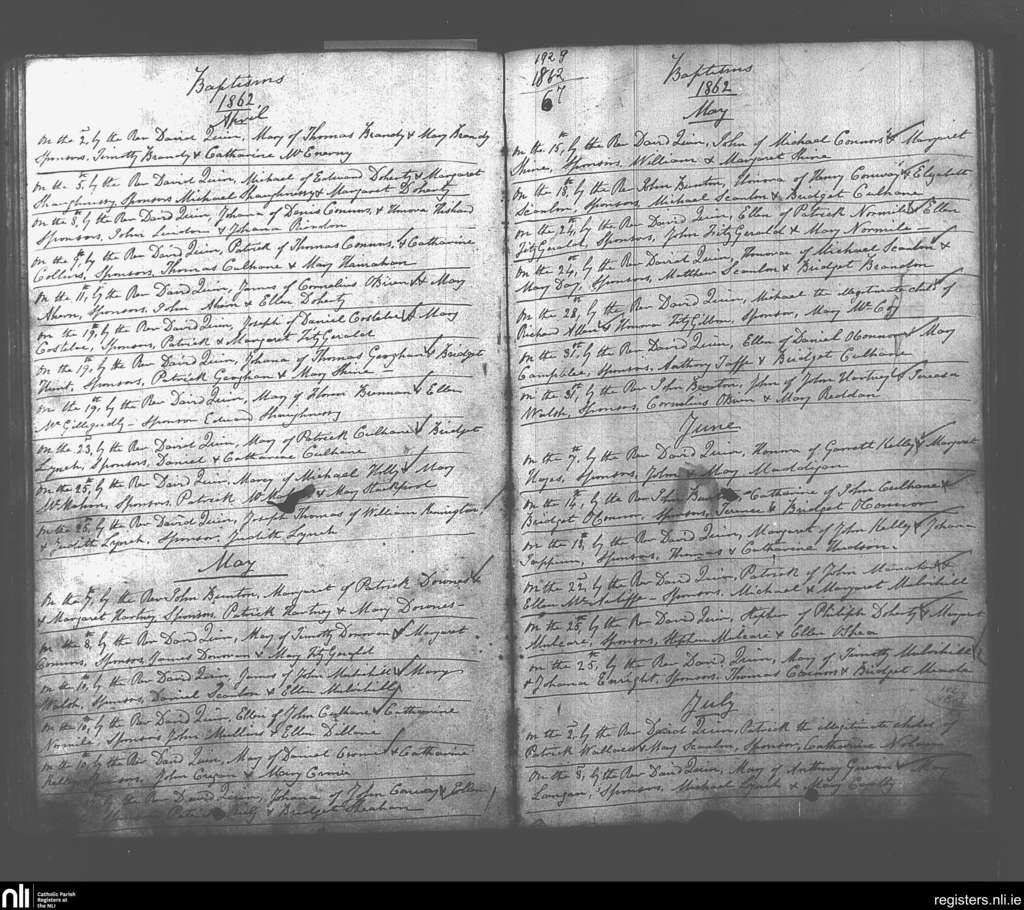 Baptisms
1862
April
On the 2nd, by the Rev David Quin, Mary of Thomas Brandy & Mary Brandy
Sponsors, Timothy Brandy & Catharine McEnerny
On the 5th, by the Rev David Quin, Michael of Edward Doherty & Margaret
Shaughnessy, Sponsors Michael Shaughnessy & Margaret Doherty
On the 8th, by the Rev David Quin, Johana of Denis Connors, & Honora
Sponsors, John & Johana Riordon
On the 9th, by the Rev David Quin, Patrick of Thomas Connors, & Catharine
Collins, Sponsors, Thomas Culhane & Mary Hanrahan
On the 11th, by the Rev David Quin, James of Cornelius OBrien & Mary
Ahern, Sponsors, John Ahern & Ellen Doherty
On the 19th, by the Rev David Quin, Joseph of Daniel Costelloe & Mary
Costelloe, Sponsors, Patrick & Margaret FitzGerald
On the 19th, by the Rev David Quin, Johana of Thomas Geoghan & Bridget
Hunt, Sponsors, Patrick Geoghan & Mary Shine
On the 19th, by the Rev David Quin, Mary of Brennan & Ellen
Sponsor Edward Shaughnessy
On the 23rd, by the Rev David Quin, Mary of Patrick Culhane & Bridget
Lynch, Sponsors, Daniel & Catharine Culhane
On the 25th, by the Rev David Quin, Mary of Michael Kelly & Mary
McMahon, Sponsors, Patrick & Mary Hackford
On the 26th, by the Rev David Quin, Joseph Thomas of William
& Judith Lynch, Sponsor Judith Lynch
May
On the 7th, by the Rev John Bunton, Margaret of Patrick Downes &
& Margaret Hartney Sponsors, Patrick Hartney & Mary Downes
On the 8th, by the Rev David Quin, Mary of Timothy Donovan & Margaret
Connors, Sponsors James Donovan & Mary FitzGerald
On the 10th, by the Rev David Quin, James of John Mulvihill & Mary
Walsh, Sponsors, Daniel Scanlon & Ellen Mulvihill
On the 10th, by the Rev David Quin, Ellen of John Culhane & Catharine
Normile, Sponsors John Mullins & Ellen Dillane
On the 10th, by the Rev David Quin, Mary of Daniel Cronin & Catharine
Kelly, Sponsors, John Cregan & Mary Cronin
by the Rev David Quin, Johana of John Conway & Ellen
Sponsors Patrick & Bridget Sheahan
1929
1862
67
Baptisms
1862
May
On the 15th, by the Rev David Quin, John of Michael Connors & Margaret
Shine, Sponsors, William & Margaret Shine
On the 18th, by the Rev John Bunton, Honora of Henry Conway & Elizabeth
Scanlon, Sponsors, Michael Scanlon & Bridget Culhane
On the 24th, by the Rev David Quin, Ellen of Patrick Normile & Ellen
FitzGerald, Sponsors, John FitzGerald & Mary Normile
On the 24, by the Rev David Quin, Honora of Michael Scanlon &
Mary Day, Sponsors, Matthew Scanlon & Bridget Brandon
On the 28, by the Rev David Quin, Michael the illegitimate child of
Richard Allen & Honora FitzGibbon, Sponsor, Mary
On the 31st, by the Rev David Quin, Ellen of Daniel OConnor & Mary
Campblle, Sponsors, Anthony Taffe & Bridget Culhane
On the 31st, by the Rev John Bunton, John of John Hartney & Teresa
Walsh, Sponsors, Cornelius OBrien & Mary Reddan
June
On the 7th, by the Rev David Quin, Honora of Garrett Kelly & Margaret
Hayes, Sponsors, John & Mary
On the 14th, by the Rev John Catharine of John Culhane &
Bridget OConnor, Sponsors, Terence & Bridget OConnor
On the 18th, by the Rev David Quin, Margaret of John Kelly & Johana
Sponsors, Thomas & Catharine Hudson
On the 22nd, by the Rev David Quin, Patrick of John &
Ellen McAuliffe, Sponsors, Michael & Margaret Mulvihill
On the 25th, by the Rev David Quin, Stephen of Philiph Doherty & Margaret
Mulcare, Sponsors, Stephen Mulcare & Ellen OShea
On the 25th, by the Rev David Quin, Mary of Timothy Mulvihill
& Johana Enright, Sponsors Thomas Connors & Bridget
July
On the 2nd, by the Rev David Quin, Patrick the illegitimate child of
Patrick Wallace & Mary Scanlon, Sponsor, Catharine Nolan
On the 3rd, by the Rev David Quin, Mary of Anthony & Mary
Langan, Sponsors, Michael Lynch & Mary
nli
Catholic Parish
Registers at
the NLI
registers.nli.ie